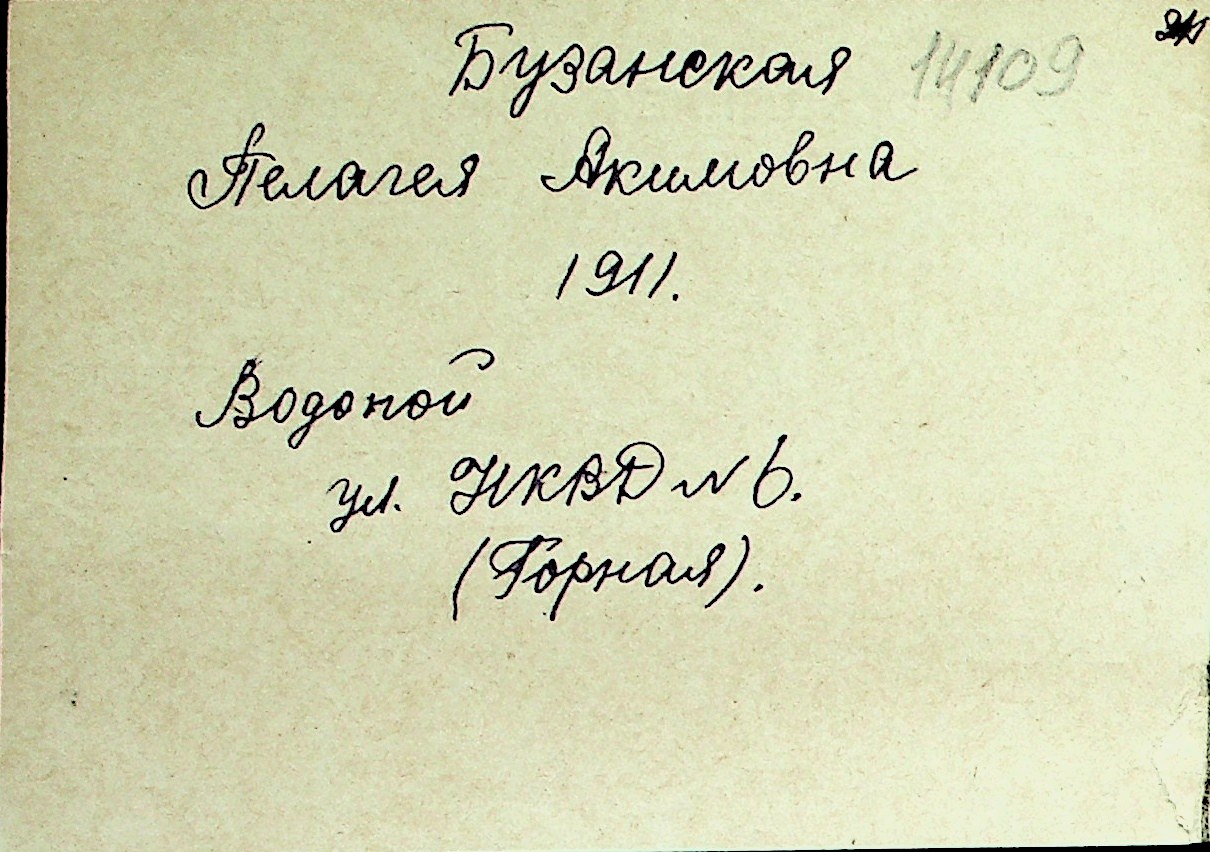 Бузанская 14109
Пелагея Акимовна
1911.
Водопой
ул. НКВД № 6.
(Горная).